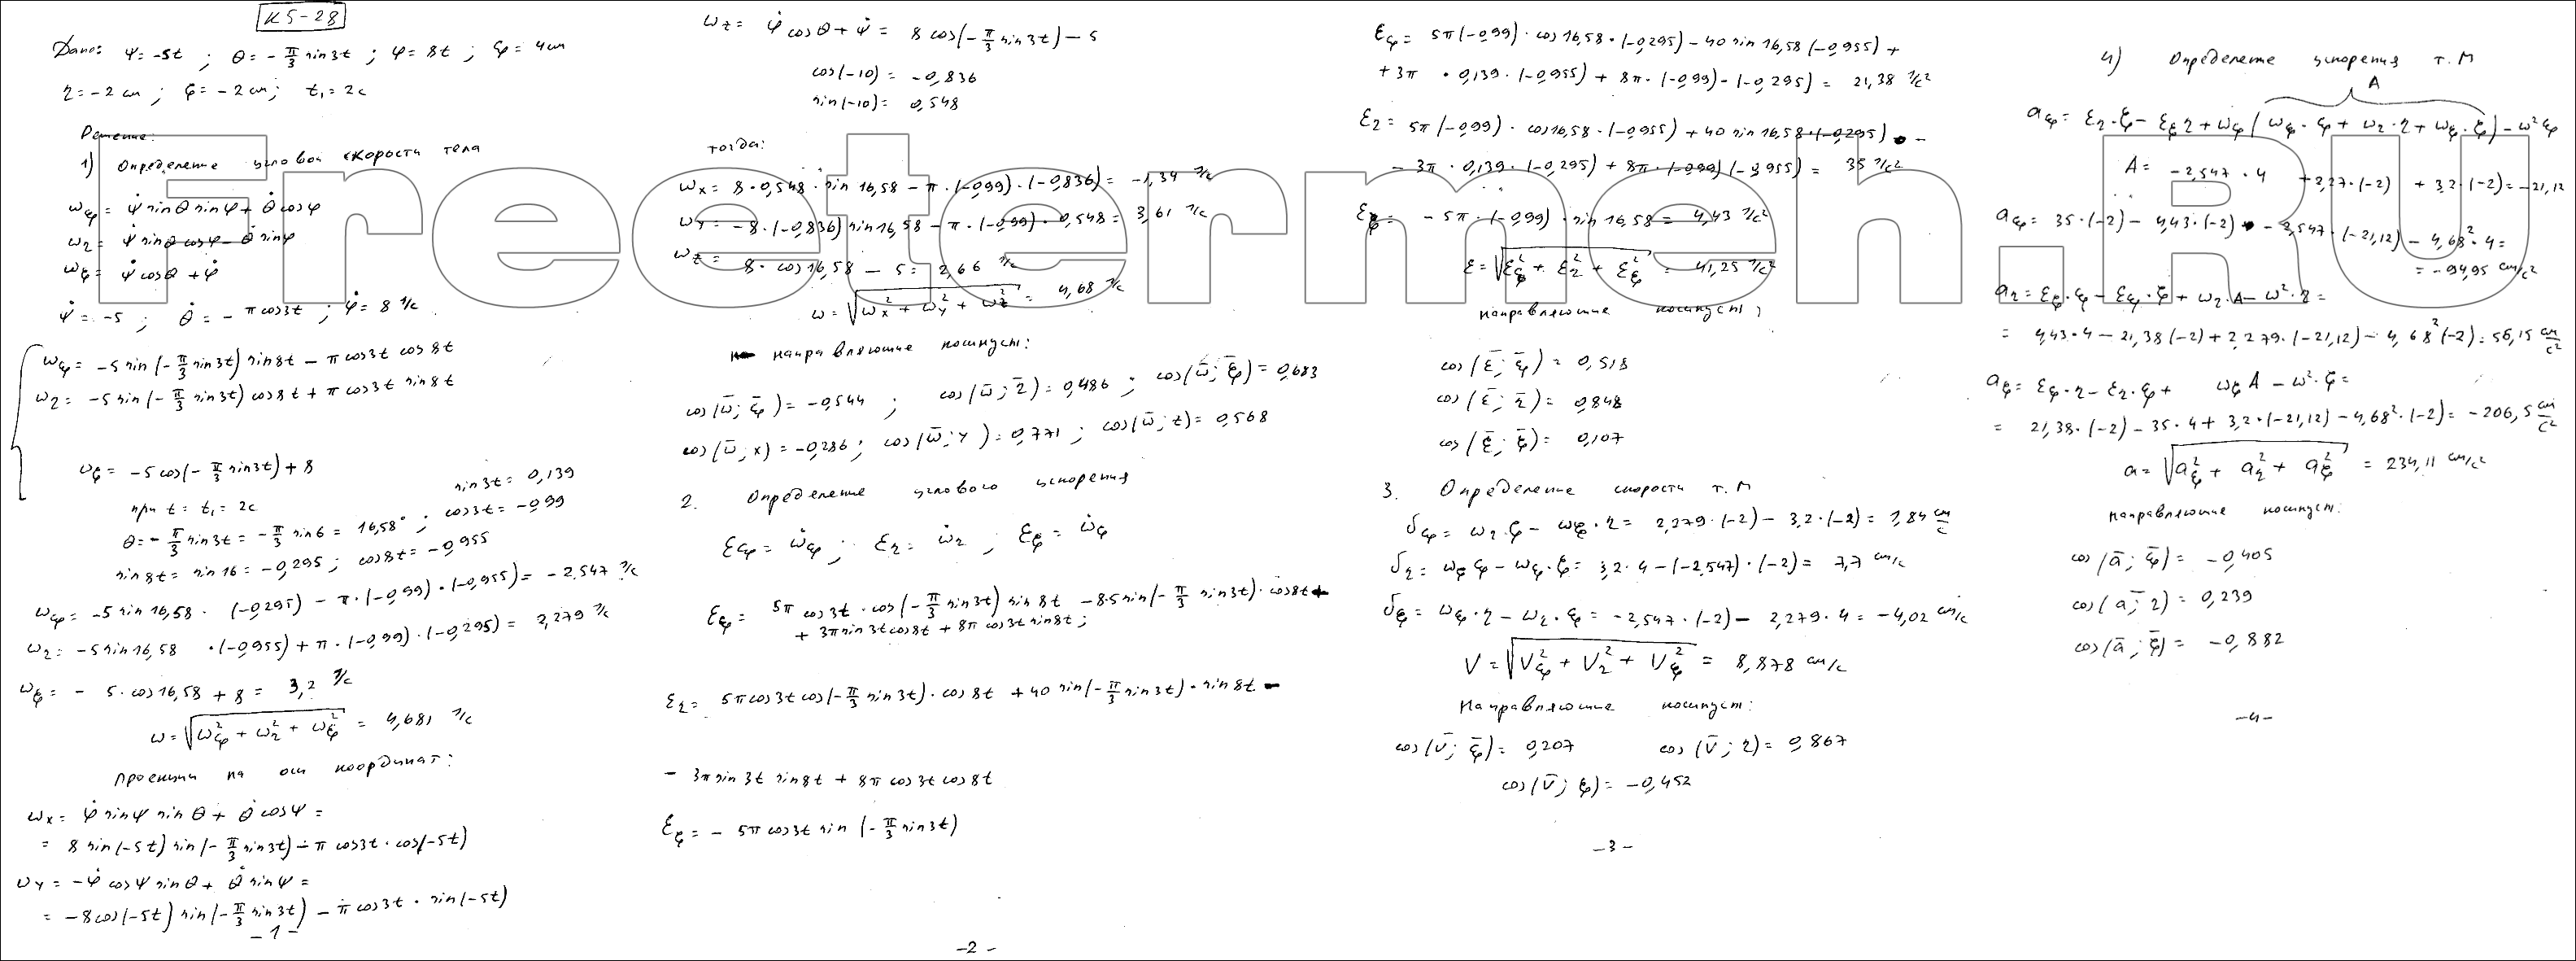 К5-28
Дано: ψ = -5t ; θ = -π/3 sin3t ; φ = 8t ; ξ = 4 см
η = -2 см ; ζ = -2 см ; t₁ = 2с
Решение:
1) Определение угловой скорости тела
ω_ξ = ψ̇ sinθ sinφ + θ̇ cosφ
ω_η = ψ̇ sinθ cosφ - θ̇ sinφ
ω_ζ = ψ̇ cosθ + φ̇
ψ̇ = -5 ; θ̇ = -π cos3t ; φ̇ = 8 1/с
ω_ξ = -5 sin(-π/3 sin3t) sin8t - π cos3t cos8t
ω_η = -5 sin(-π/3 sin3t) cos8t + π cos3t sin8t
ω_ζ = -5 cos(-π/3 sin3t) + 8
при t = t₁ = 2с
sin3t = 0,139
θ = -π/3 sin3t = -π/3 sin6 = 16,58° ; cos3t = -0,99
sin8t = sin16 = -0,295 ; cos8t = -0,955
ω_ξ = -5 sin16,58 · (-0,295) - π · (-0,99) · (-0,955) = -2,547 1/с
ω_η = -5 sin16,58 · (-0,955) + π · (-0,99) · (-0,295) = 2,279 1/с
ω_ζ = - 5 · cos16,58 + 8 = 3,2 1/с
ω = √(ω_ξ² + ω_η² + ω_ζ²) = 4,681 1/с
проекции на оси координат:
ω_x = φ̇ sinψ sinθ + θ̇ cosψ =
= 8 sin(-5t) sin(-π/3 sin3t) - π cos3t · cos(-5t)
ω_y = -φ̇ cosψ sinθ + θ̇ sinψ =
= -8cos(-5t) sin(-π/3 sin3t) - π cos3t · sin(-5t)
-1-
ω_z = φ̇ cosθ + ψ̇ = 8 cos(-π/3 sin3t) - 5
cos(-10) = -0,836
sin(-10) = 0,548
тогда:
ω_x = 8 · 0,548 · sin 16,58 - π · (-0,99) · (-0,836) = -1,34 1/с
ω_y = -8 · (-0,836) sin16,58 - π · (-0,99) · 0,548 = 3,61 1/с
ω_z = 8 · cos16,58 - 5 = 2,66 1/с
ω = √(ω_x² + ω_y² + ω_z²) = 4,68 1/с
направляющие косинусы:
cos(ω̄; ξ̄) = -0,544 ; cos(ω̄; η̄) = 0,486 ; cos(ω̄; ζ̄) = 0,683
cos(ω̄; x) = -0,286 ; cos(ω̄; y) = 0,771 ; cos(ω̄; z) = 0,568
2. Определение углового ускорения
ε_ξ = ω̇_ξ ; ε_η = ω̇_η ; ε_ζ = ω̇_ζ
ε_ξ = 5π cos3t · cos(-π/3 sin3t) sin 8t - 8·5 sin(-π/3 sin3t) · cos8t +
+ 3π sin3t cos8t + 8π cos3t sin8t ;
ε_η = 5π cos3t cos(-π/3 sin3t) · cos 8t + 40 sin(-π/3 sin3t) · sin8t -
- 3π sin 3t sin8t + 8π cos3t cos8t
ε_ζ = - 5π cos3t sin (-π/3 sin3t)
-2-
ε_ξ = 5π(-0,99) · cos16,58 · (-0,295) - 40 sin16,58 (-0,955) +
+ 3π · 0,139 · (-0,955) + 8π · (-0,99) · (-0,295) = 21,38 1/с²
ε_η = 5π(-0,99) · cos16,58 · (-0,955) + 40 sin16,58 · (-0,295) -
- 3π · 0,139 · (-0,295) + 8π · (-0,99) (-0,955) = 35 1/с²
ε_ζ = - 5π · (-0,99) · sin16,58 = 4,43 1/с²
ε = √(ε_ξ² + ε_η² + ε_ζ²) = 41,25 1/с²
направляющие косинусы:
cos(ε̄; ξ̄) = 0,518
cos(ε̄; η̄) = 0,848
cos(ε̄; ζ̄) = 0,107
3. Определение скорости т. М
υ_ξ = ω_η · ζ - ω_ζ · η = 2,279 · (-2) - 3,2 · (-2) = 1,84 см/с
υ_η = ω_ζ ξ - ω_ξ · ζ = 3,2 · 4 - (-2,547) · (-2) = 7,7 см/с
υ_ζ = ω_ξ · η - ω_η · ξ = -2,547 · (-2) - 2,279 · 4 = -4,02 см/с
V = √(V_ξ² + V_η² + V_ζ²) = 8,878 см/с
Направляющие косинусы:
cos(V̄; ξ̄) = 0,207 cos(V̄; η) = 0,867
cos(V̄; ζ) = -0,452
-3-
4) Определение ускорения т. М
A
a_ξ = ε_η · ζ - ε_ζ η + ω_ξ (ω_ξ · ξ + ω_η · η + ω_ζ · ζ) - ω² ξ
A = -2,547 · 4 + 2,27 · (-2) + 3,2 · (-2) = -21,12
a_ξ = 35 · (-2) - 4,43 · (-2) - 2,547 · (-21,12) - 4,68² · 4 =
= -94,95 см/с²
a_η = ε_ζ · ξ - ε_ξ · ζ + ω_η · A - ω² · η =
= 4,43 · 4 - 21,38 (-2) + 2,279 · (-21,12) - 4,68² (-2) = 56,15 см/с²
a_ζ = ε_ξ · η - ε_η · ξ + ω_ζ A - ω² · ζ =
= 21,38 · (-2) - 35 · 4 + 3,2 · (-21,12) - 4,68² · (-2) = -206,5 см/с²
a = √(a_ξ² + a_η² + a_ζ²) = 234,11 см/с²
направляющие косинусы:
cos(ā; ξ̄) = -0,405
cos(ā; η) = 0,239
cos(ā; ζ̄) = -0,882
-4-
Freetermeh.RU